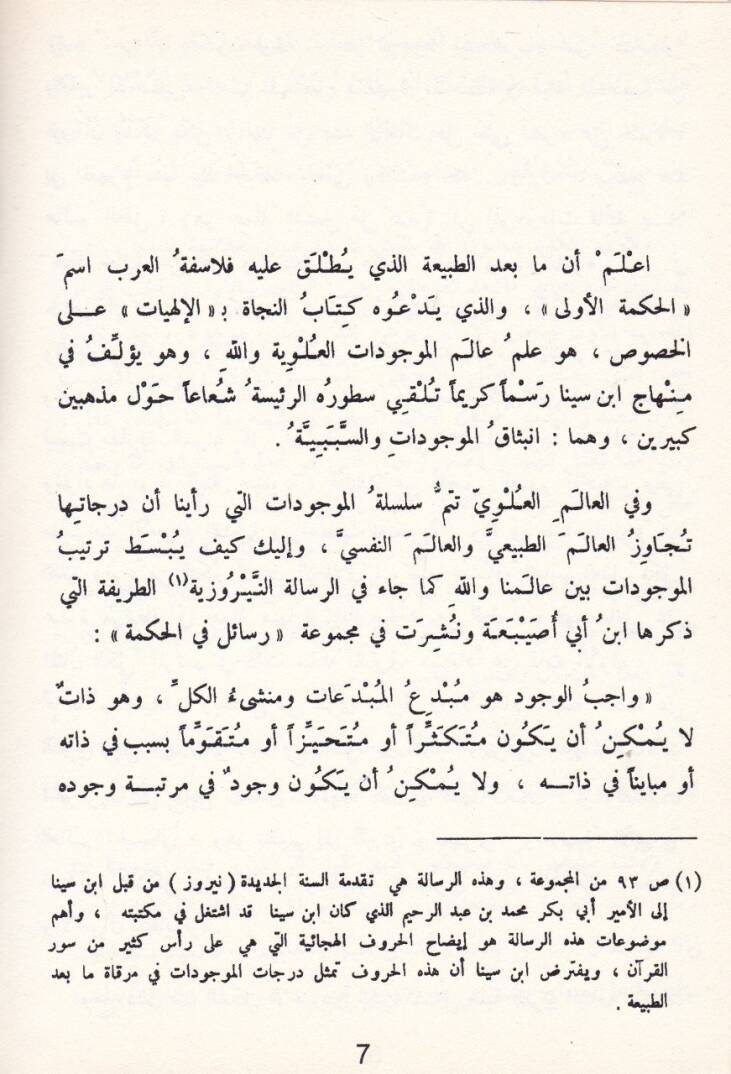 اعْلَمْ أن ما بعد الطبيعة الذي يُطْلَق عليه فلاسفةُ العرب اسمَ
« الحكمة الأولى » ، والذي يَدْعُوه كِتَابُ النجاة بـ « الإلهيات » عـلى
الخصوص ، هو علمُ عالَم الموجودات العُلْوِية واللهِ ، وهو يؤلِّفُ في
مِنْهاج ابن سينا رَسْماً كريماً تُلْقِي سطورُه الرئيسةُ شُعاعاً حَوْل مذهبين
كبيرين ، وهما : انبثاقُ الموجوداتِ والسَّبَبِيَّةُ .
وفي العالَمِ العُلْوِيّ تتمُّ سلسلةُ الموجودات التي رأينا أن درجاتِها
تُجَاوِزُ العالَمَ الطبيعيَّ والعالَمَ النفسيَّ ، وإليك كيف يُبْسَط ترتيبُ
الموجودات بين عالَمنا واللهِ كما جاء في الرسالة النَّيْرُوزية(١) الطريفة التي
ذكرها ابنُ أبي أُصَيْبَعَة ونُشِرَت في مجموعة « رسائل في الحكمة » :
« واجبُ الوجود هو مُبْدِعُ المُبْدَعات ومنشىءُ الكلِّ ، وهو ذاتٌ
لا يُمْكِنُ أن يَكُون مُتَكَثِّراً أو مُتَحَيِّزاً أو مُتَقَوِّماً بسبب في ذاته
أو مبايناً في ذاتـــه ، ولا يُمْكِنُ أن يَكُون وجودٌ في مرتبـــة وجوده
(١) ص ٩٣ من المجموعة ، وهذه الرسالة هي تقدمة السنة الجديدة ( نيروز ) من قبل ابن سينا
إلى الأمير أبي بكر محمد بن عبد الرحيم الذي كان ابن سينا قد اشتغل في مكتبته ، وأهم
موضوعات هذه الرسالة هو إيضاح الحروف الهجائية التي هي على رأس كثير من سور
القرآن ، ويفترض ابن سينا أن هذه الحروف تمثل درجات الموجودات في مرقاة ما بعد
الطبيعة .
7